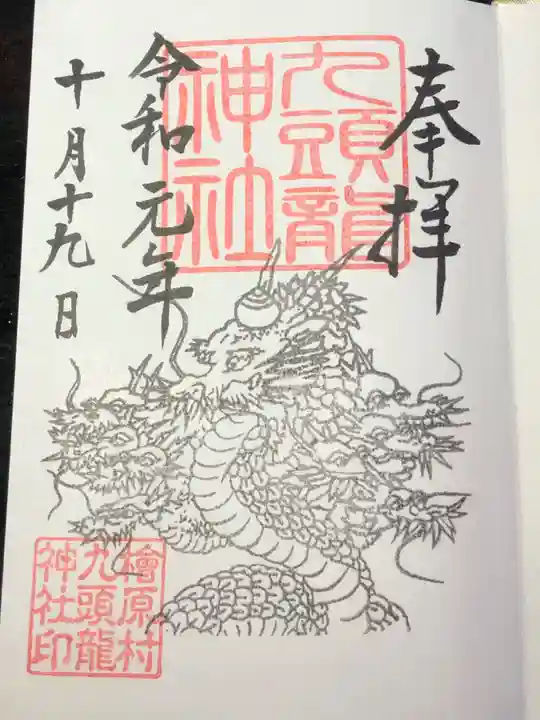 奉拝
九頭龍
神社
令和元年
十月十九日
檜原村
九頭龍
神社印